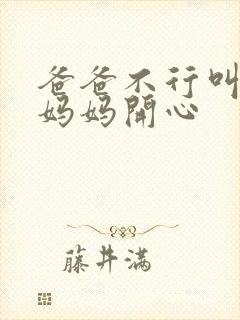 爸爸不行叫
妈妈開心
藤井满